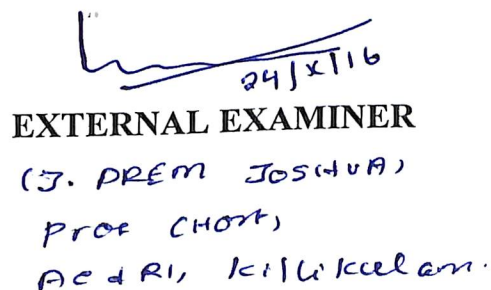 24/X/16
EXTERNAL EXAMINER
(J. PREM JOSHUA)
Prof (Hort),
AC & RI, Killikulam.